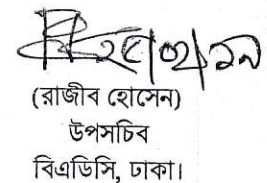 (রাজীব হোসেন)
উপসচিব
বিএডিসি, ঢাকা।